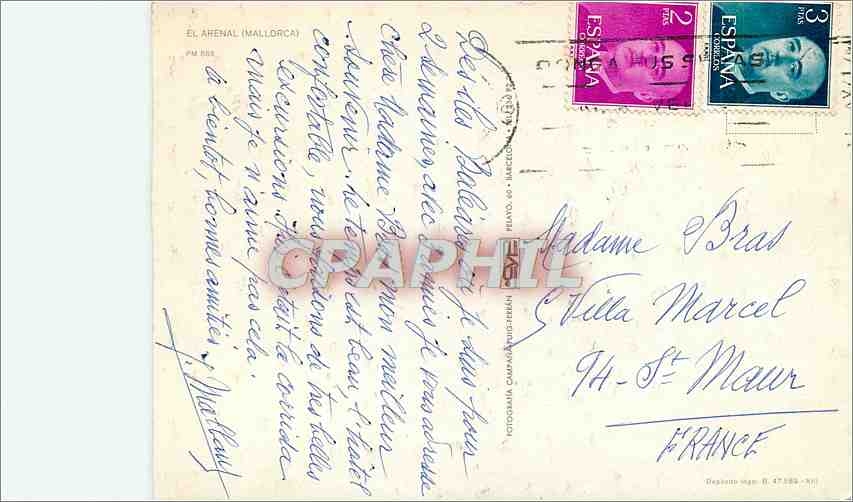 EL ARENAL (MALLORCA)
PM 868
Dès Iles Baléares où je suis pour
2 semaines, avec 2 amis je vous adresse
Chère Madame Bras mon meilleur
souvenir. Le temps est beau, l'hotel
confortable, nous faisons de très belles
excursions. Hier c'était la corrida
mais je n'aime pas cela.
à bientôt, bonnes amitiés,
FOTOGRAFIA CAMPAÑA PUIG-FERRAN PELAYO, 60 • BARCELONA
CPAPHIL
2 PTAS
ESPAÑA
CORREOS
3 PTAS
ESPAÑA
CORREOS
PONGA SUS SEÑAS
Madame Bras
Villa Marcel
94 - St Maur
FRANCE
Depósito legal B. 47.569 - XIII